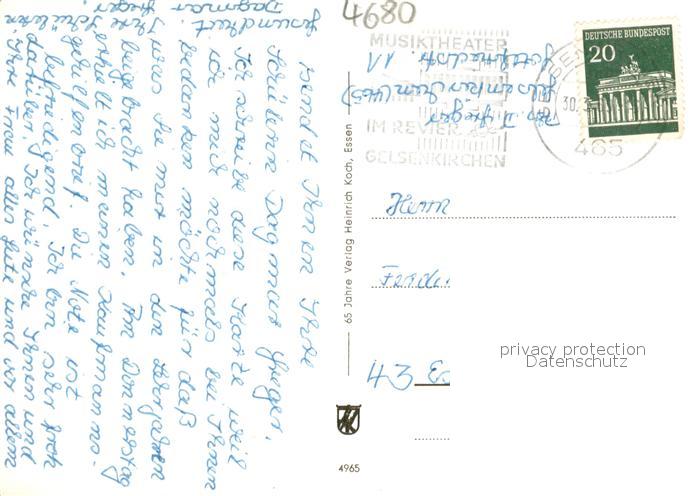 4680
MUSIKTHEATER
IM REVIER
GELSENKIRCHEN
DEUTSCHE BUNDESPOST
20
30.
465
Herrn
43
privacy protection
Datenschutz
65 Jahre Verlag Heinrich Koch, Essen
4965
sendet Ihnen Ihre
Schülerin Dagmar
Ich schreibe diese Karte weil
ich mich nochmals bei Ihnen
bedanken möchte für daß
was Sie mir in den Lehrjahren
beigebracht haben. Am Donnerstag
erhielt ich meinen Kaufmanns-
gehilfenbrief. Die Note ist
befriedigend. Ich bin sehr froh
darüber. Ich wünsche Ihnen und
Ihrer Frau alles Gute und vor allem
Gesundheit.
Ihre Schülerin
Dagmar